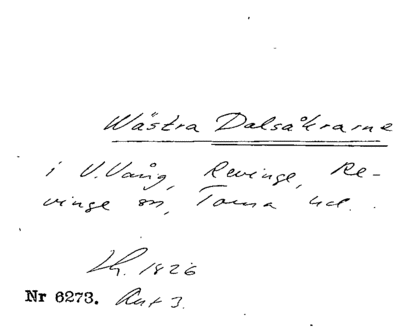 Wästra Dalsåkrarne
i V. Vång, Revinge, Re-
vinge sn, Torna hd.
Lh. 1826
Nr 6273. Akt 3.